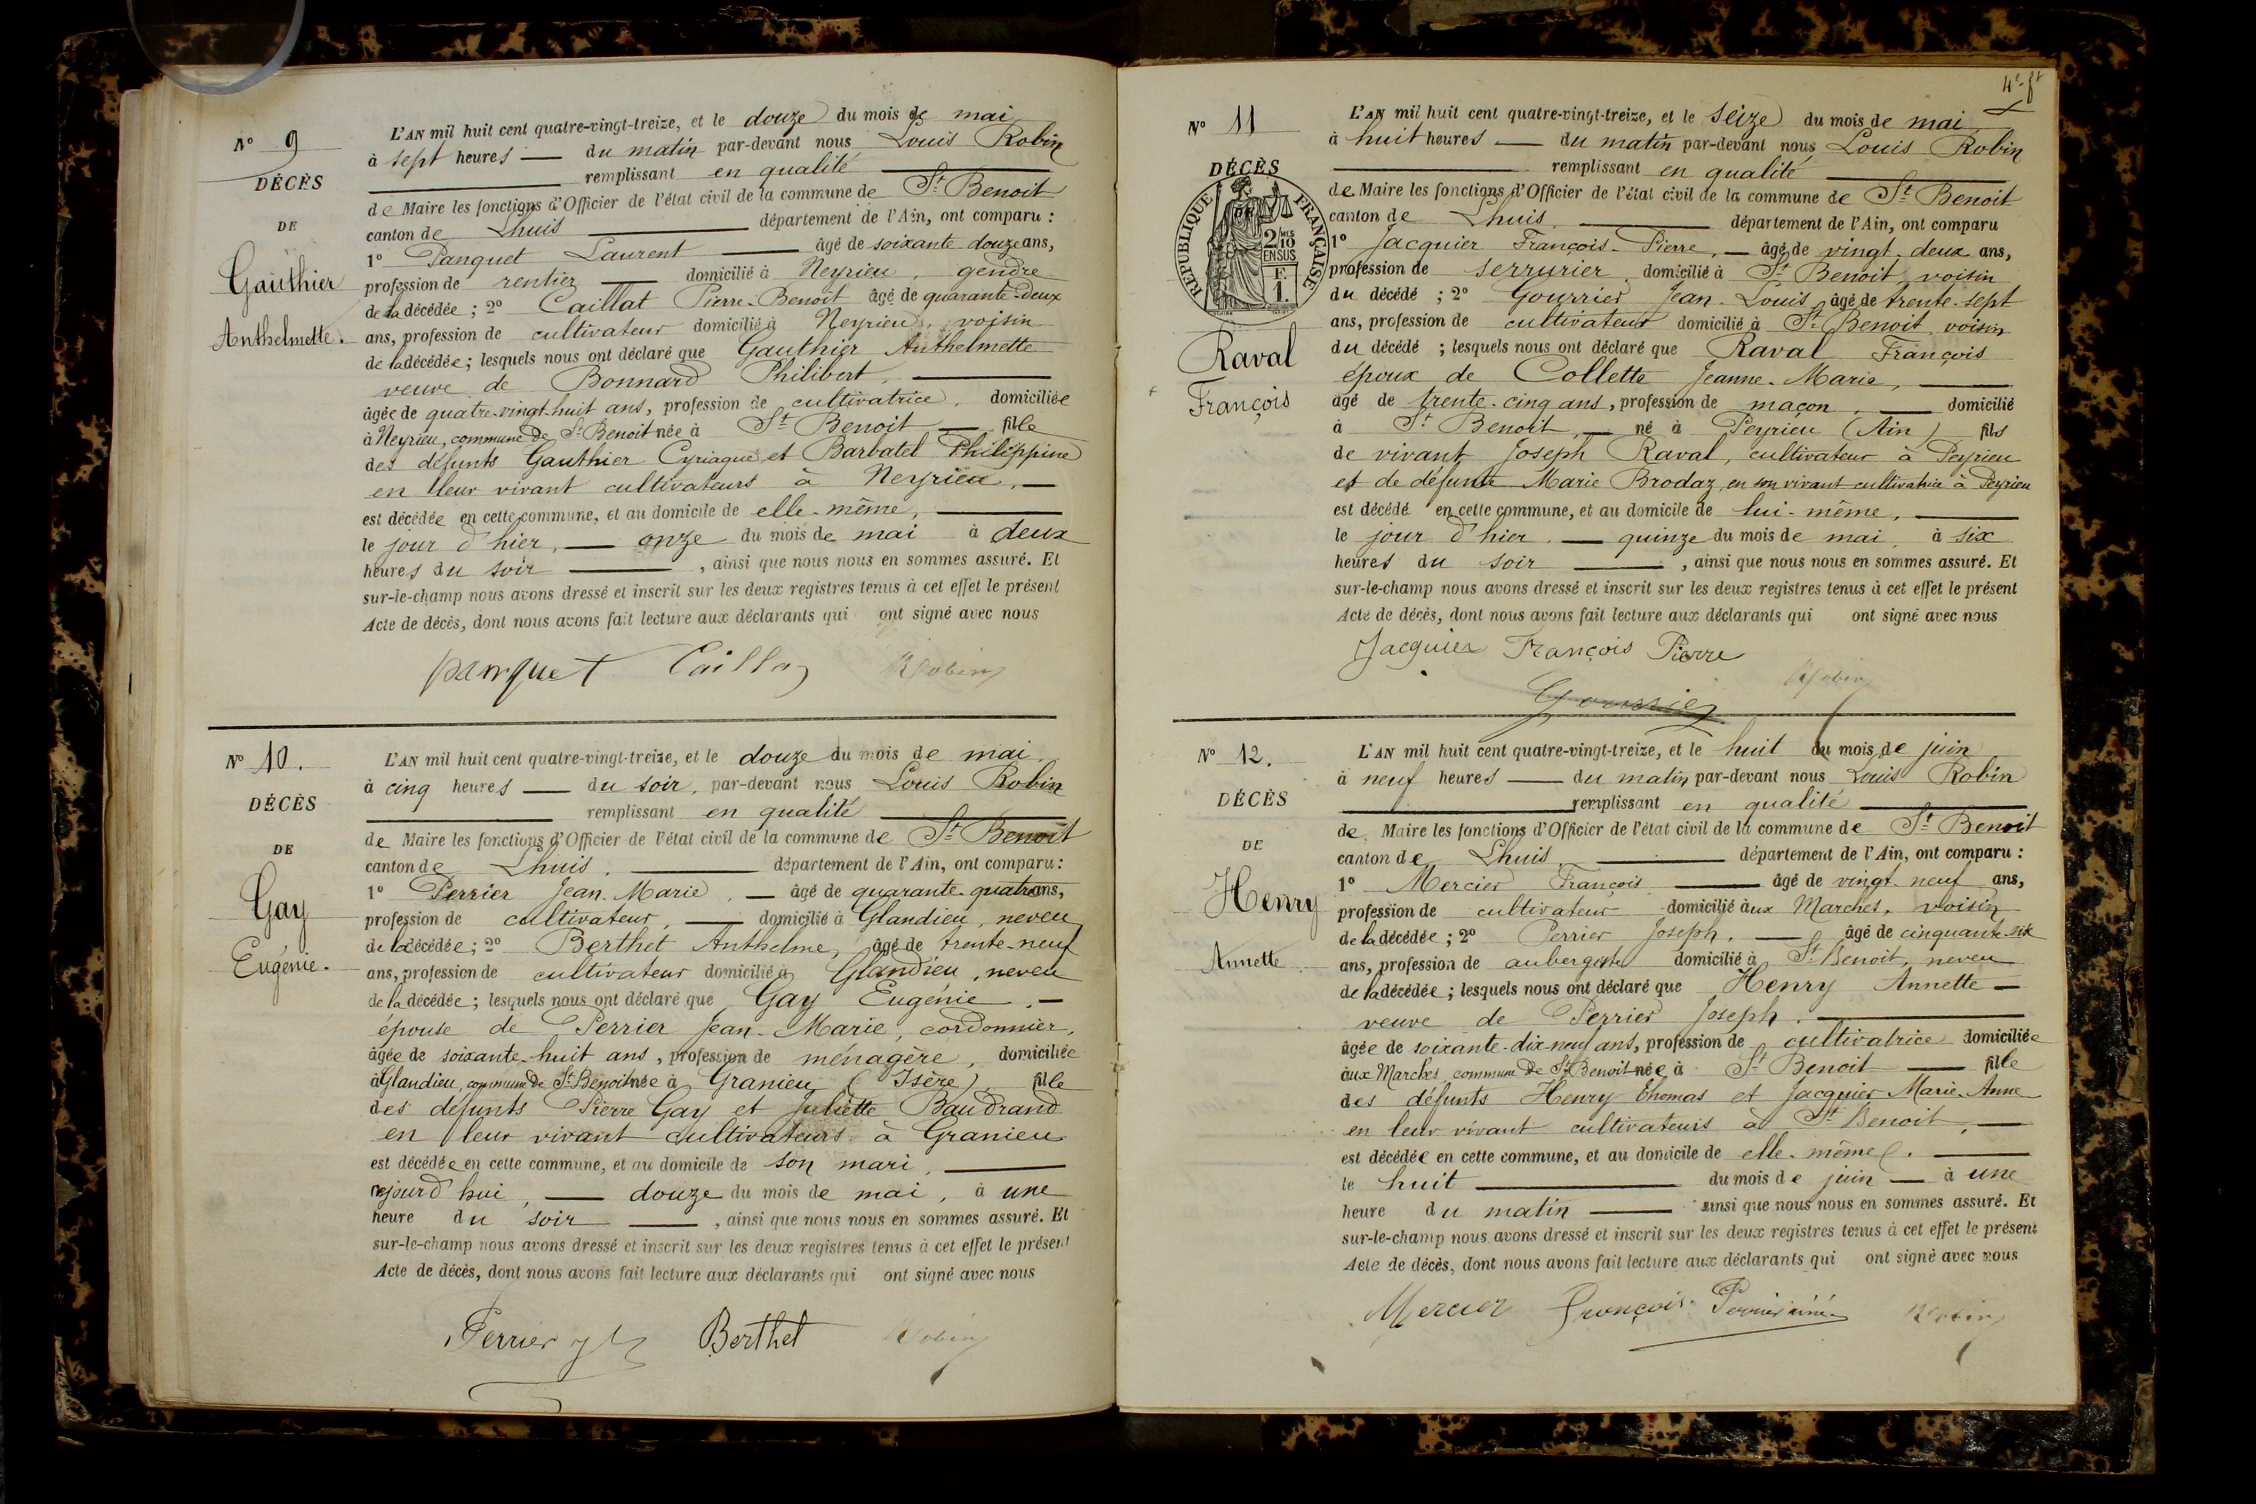 N° 9
DÉCÈS
DE
Gauthier
Anthelmette.
L'AN mil huit cent quatre-vingt-treize, et le douze du mois de mai
à sept heures — du matin par-devant nous Louis Robin
remplissant en qualité
de Maire les fonctions d'Officier de l'état civil de la commune de St Benoit
canton de Lhuis département de l'Ain, ont comparu :
1° Panquet Laurent — âgé de soixante-douze ans,
profession de rentier — domicilié à Neyrieu, gendre
de la décédée ; 2° Caillat Pierre-Benoit âgé de quarante-deux
ans, profession de cultivateur domicilié à Neyrieu, voisin
de la décédée ; lesquels nous ont déclaré que Gauthier Anthelmette
veuve de Bonnard Philibert,
âgée de quatre-vingt-huit ans, profession de cultivatrice, domiciliée
à Neyrieu, commune de St Benoit née à St Benoit — fille
des défunts Gauthier Cyriaque et Barbatel Philippine
en leur vivant cultivateurs à Neyrieu, —
est décédée en cette commune, et au domicile de elle-même,
le jour d'hier, — onze du mois de mai à deux
heures du soir — , ainsi que nous nous en sommes assuré. Et
sur-le-champ nous avons dressé et inscrit sur les deux registres tenus à cet effet le présent
Acte de décès, dont nous avons fait lecture aux déclarants qui ont signé avec nous
panquet Caillat Robin
N° 10.
DÉCÈS
DE
Gay
Eugénie.
L'AN mil huit cent quatre-vingt-treize, et le douze du mois de mai
à cinq heures — du soir, par-devant nous Louis Robin
remplissant en qualité
de Maire les fonctions d'Officier de l'état civil de la commune de St Benoit
canton de Lhuis. département de l'Ain, ont comparu :
1° Perrier Jean-Marie, — âgé de quarante-quatre ans,
profession de cultivateur, — domicilié à Glandieu, neveu
de la décédée ; 2° Berthet Anthelme, âgé de trente-neuf
ans, profession de cultivateur domicilié à Glandieu, neveu
de la décédée ; lesquels nous ont déclaré que Gay Eugénie, —
épouse de Perrier Jean-Marie, cordonnier,
âgée de soixante-huit ans, profession de ménagère, domiciliée
à Glandieu, commune de St Benoit née à Granieu (Isère), fille
des défunts Pierre Gay et Juliette Baudrand
en leur vivant cultivateurs à Granieu
est décédée en cette commune, et au domicile de son mari,
jourd'hui, — douze du mois de mai, à une
heure du soir — , ainsi que nous nous en sommes assuré. Et
sur-le-champ nous avons dressé et inscrit sur les deux registres tenus à cet effet le présent
Acte de décès, dont nous avons fait lecture aux déclarants qui ont signé avec nous
Perrier Berthet Robin
N° 11
DÉCÈS
DE
RÉPUBLIQUE FRANÇAISE
2/10 EN SUS
F.
1.
Raval
François
L'AN mil huit cent quatre-vingt-treize, et le seize du mois de mai
à huit heures — du matin par-devant nous Louis Robin
remplissant en qualité
de Maire les fonctions d'Officier de l'état civil de la commune de St Benoit
canton de Lhuis. département de l'Ain, ont comparu
1° Jacquier François-Pierre, — âgé de vingt-deux ans,
profession de serrurier, domicilié à St Benoit, voisin
du décédé ; 2° Gourrier Jean-Louis âgé de trente-sept
ans, profession de cultivateur domicilié à St Benoit voisin
du décédé ; lesquels nous ont déclaré que Raval François
époux de Collette Jeanne-Marie,
âgé de trente-cinq ans, profession de maçon, — domicilié
à St Benoit, — né à Peyrieu (Ain) fils
de vivant Joseph Raval, cultivateur à Peyrieu
et de défunte Marie Brodaz, en son vivant cultivatrice à Peyrieu
est décédé en cette commune, et au domicile de lui-même,
le jour d'hier. — quinze du mois de mai, à six
heures du soir — , ainsi que nous nous en sommes assuré. Et
sur-le-champ nous avons dressé et inscrit sur les deux registres tenus à cet effet le présent
Acte de décès, dont nous avons fait lecture aux déclarants qui ont signé avec nous
Jacquier François Pierre Robin
Gourrier
N° 12.
DÉCÈS
DE
Henry
Annette
L'AN mil huit cent quatre-vingt-treize, et le huit du mois de juin
à neuf heures — du matin par-devant nous Louis Robin
remplissant en qualité
de Maire les fonctions d'Officier de l'état civil de la commune de St Benoit
canton de Lhuis. département de l'Ain, ont comparu :
1° Mercier François — âgé de vingt-neuf ans,
profession de cultivateur domicilié aux Marches, voisin
de la décédée ; 2° Perrier Joseph. — âgé de cinquante-six
ans, profession de aubergiste domicilié à St Benoit, neveu
de la décédée ; lesquels nous ont déclaré que Henry Annette —
veuve de Perrier Joseph.
âgée de soixante-dix-neuf ans, profession de cultivatrice domiciliée
aux Marches commune de St Benoit née à St Benoit — fille
des défunts Henry Thomas et Jacquier Marie-Anne
en leur vivant cultivateurs à St Benoit, —
est décédée en cette commune, et au domicile de elle-même.
le huit — du mois de juin — à une
heure du matin — ainsi que nous nous en sommes assuré. Et
sur-le-champ nous avons dressé et inscrit sur les deux registres tenus à cet effet le présent
Acte de décès, dont nous avons fait lecture aux déclarants qui ont signé avec nous
Mercier François Perrier ainé Robin